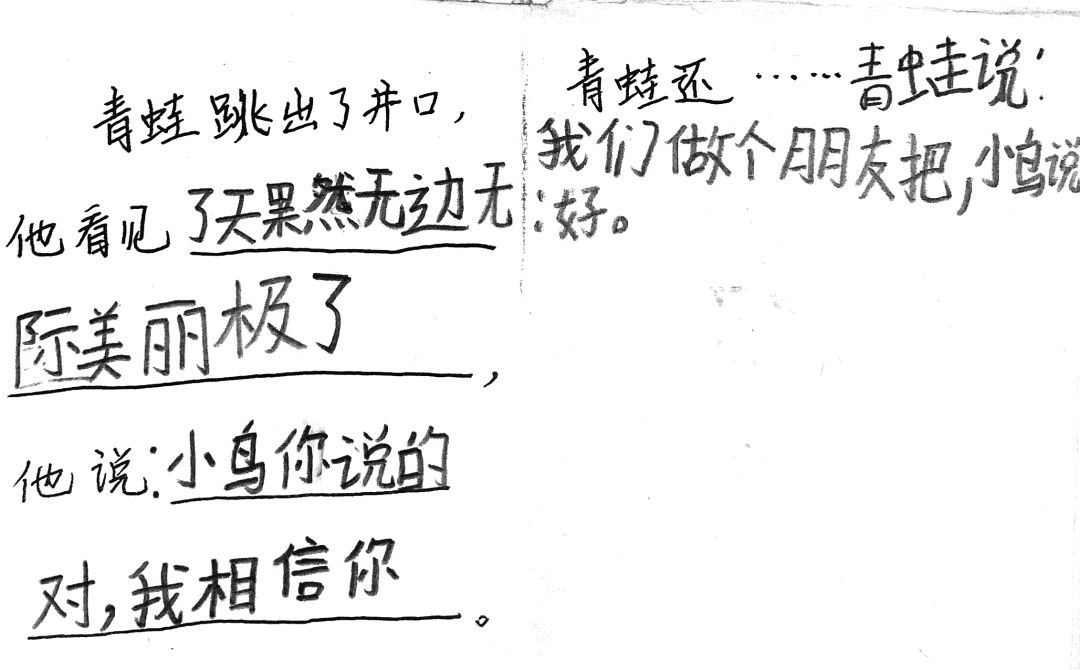 青蛙跳出了井口，
他看见了天果然无边无
际美丽极了，
他说：小鸟你说的
对，我相信你。
青蛙还……青蛙说：
我们做个朋友把，小鸟说
：好。